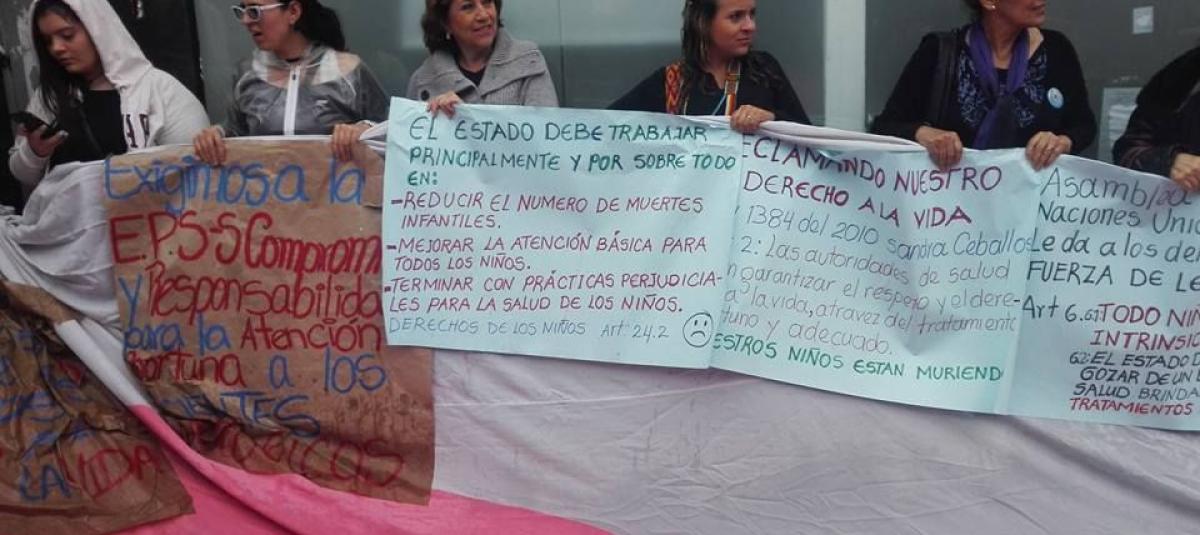 Exigimos a la
E.P.S-S Comprom
y Responsabilida
para la Atención
ortuna a los
LA VIDA
EL ESTADO DEBE TRABAJAR
PRINCIPALMENTE Y POR SOBRE TODO
EN:
-REDUCIR EL NUMERO DE MUERTES
INFANTILES.
-MEJORAR LA ATENCIÓN BÁSICA PARA
TODOS LOS NIÑOS.
-TERMINAR CON PRÁCTICAS PERJUDICIA-
LES PARA LA SALUD DE LOS NIÑOS.
DERECHOS DE LOS NIÑOS Art: 24.2
ECLAMANDO NUESTRO
DERECHO A LA VIDA
1384 del 2010 sandra Ceballos
2: Las autoridades de salud
n garantizar el respeto y el dere-
a la vida, atravez del tratamiento
tuno y adecuado.
ESTROS NIÑOS ESTAN MURIEND
Asamblea
Naciones Unid
Le da a los de
FUERZA DE LE
Art 6. 6.1 TODO NIÑ
INTRINSIC
6.2: EL ESTADO D
GOZAR DE UN
SALUD BRINDA
TRATAMIENTOS